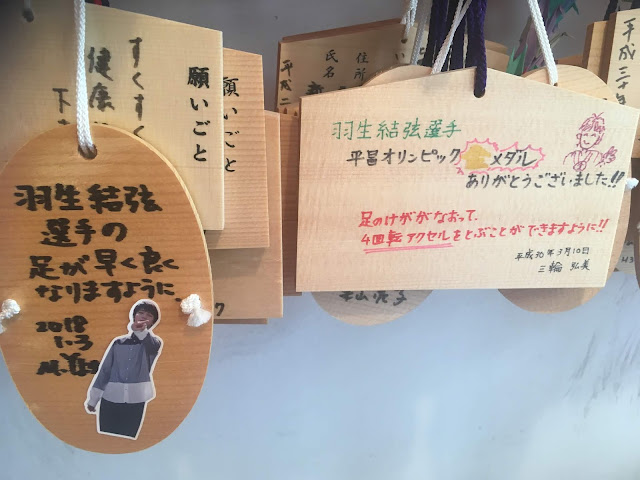 羽生結弦
選手の
足が早く良く
なりますように。
2018
1.3
すくすく
健康
願いごと
願いごと
住所
氏名
平成二
羽生結弦選手
平昌オリンピック金メダル
ありがとうございました!!
足のけががなおって、
4回転アクセルをとぶことができますように!!
平成30年3月10日
三輪 弘美
平成三十年